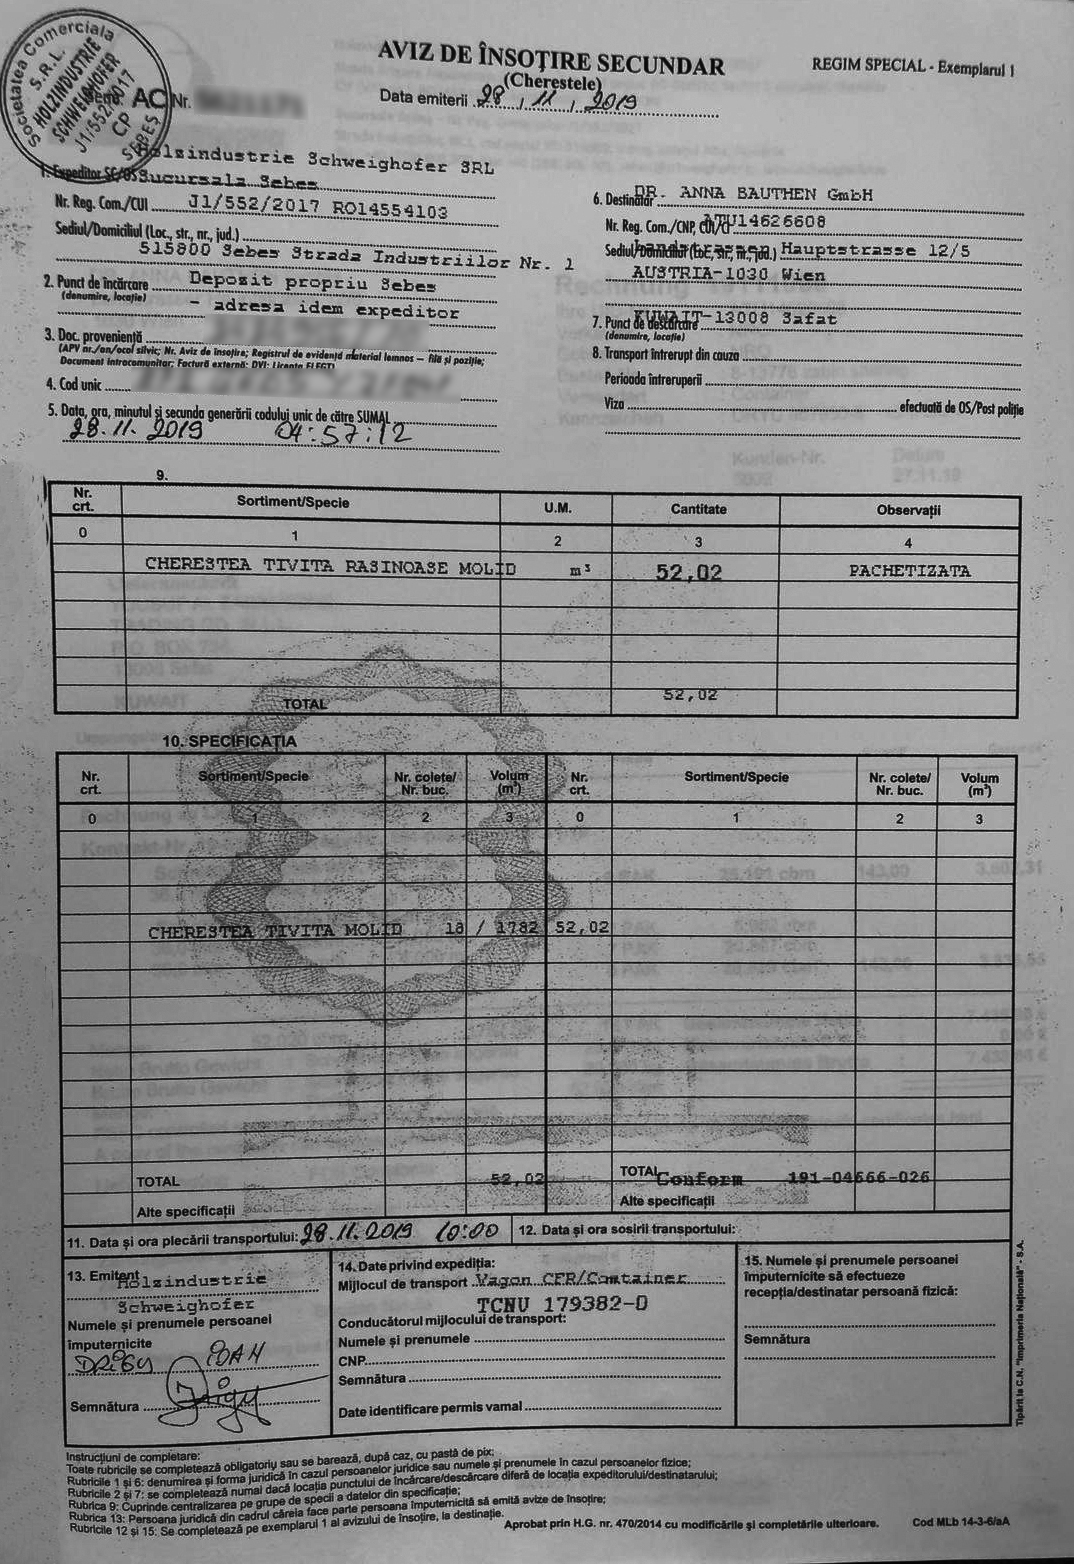 Societatea Comerciala
S.R.L.
HOLZINDUSTRIE
SCHWEIGHOFER
J1/552/2017
CP
SEBEȘ
AVIZ DE ÎNSOȚIRE SECUNDAR
(Cherestele)
REGIM SPECIAL - Exemplarul 1
AC Nr.
Data emiterii 28, 11, 2019
Holzindustrie Schweighofer SRL
1. Expeditor SC/OS Sucursala Sebes
Nr. Reg. Com./CUI J1/552/2017 RO14554103
Sediul/Domiciliul (Loc., str., nr., jud.)
515800 Sebes Strada Industriilor Nr. 1
2. Punct de încărcare Deposit propriu Sebes
(denumire, locație) - adresa idem expeditor
3. Doc. proveniență
(APV nr./an/ocol silvic; Nr. Aviz de însoțire; Registrul de evidență material lemnos – filă și poziție;
Document intracomunitar; Factură externă; DVI;
4. Cod unic
5. Data, ora, minutul și secunda generării codului unic de către SUMAL
28.11.2019 04:57:12
6. Destinatar DR. ANNA BAUTHEN GmbH
Nr. Reg. Com./CNP, CUI/CI ATU14626608
Sediul/Domiciliul (Loc., str., nr., jud.) Landstrassen Hauptstrasse 12/5
AUSTRIA-1030 Wien
7. Punct de descărcare KUWAIT-13008 Safat
(denumire, locație)
8. Transport întrerupt din cauza
Perioada întreruperii
Viza efectuată de OS/Post poliție
9.
Nr. crt. Sortiment/Specie U.M. Cantitate Observații
0 1 2 3 4
CHERESTEA TIVITA RASINOASE MOLID m³ 52,02 PACHETIZATA
TOTAL 52,02
10. SPECIFICAȚIA
Nr. crt. Sortiment/Specie Nr. colete/ Nr. buc. Volum (m³) Nr. crt. Sortiment/Specie Nr. colete/ Nr. buc. Volum (m³)
0 1 2 3 0 1 2 3
CHERESTEA TIVITA MOLID 18 / 1782 52,02
TOTAL 52,02 TOTAL Conform 191-04666-026
Alte specificații Alte specificații
11. Data și ora plecării transportului: 28.11.2019 10:00 12. Data și ora sosirii transportului:
13. Emitent Holzindustrie
Schweighofer
Numele și prenumele persoanei
împuternicite
IOAN
Semnătura
14. Date privind expediția:
Mijlocul de transport Vagon CFR/Container
TCNU 179382-0
Conducătorul mijlocului de transport:
Numele și prenumele
CNP
Semnătura
Date identificare permis vamal
15. Numele și prenumele persoanei
împuternicite să efectueze
recepția/destinatar persoană fizică:
Semnătura
Tipărit la C.N. "Imprimeria Națională" - S.A.
Instrucțiuni de completare:
Toate rubricile se completează obligatoriu sau se barează, după caz, cu pastă de pix;
Rubricile 1 și 6: denumirea și forma juridică în cazul persoanelor juridice sau numele și prenumele în cazul persoanelor fizice;
Rubricile 2 și 7: se completează numai dacă locația punctului de încărcare/descărcare diferă de locația expeditorului/destinatarului;
Rubrica 9: Cuprinde centralizarea pe grupe de specii a datelor din specificație;
Rubrica 13: Persoana juridică din cadrul căreia face parte persoana împuternicită să emită avize de însoțire;
Rubricile 12 și 15: Se completează pe exemplarul 1 al avizului de însoțire, la destinație.
Aprobat prin H.G. nr. 470/2014 cu modificările și completările ulterioare. Cod MLb 14-3-6/aA